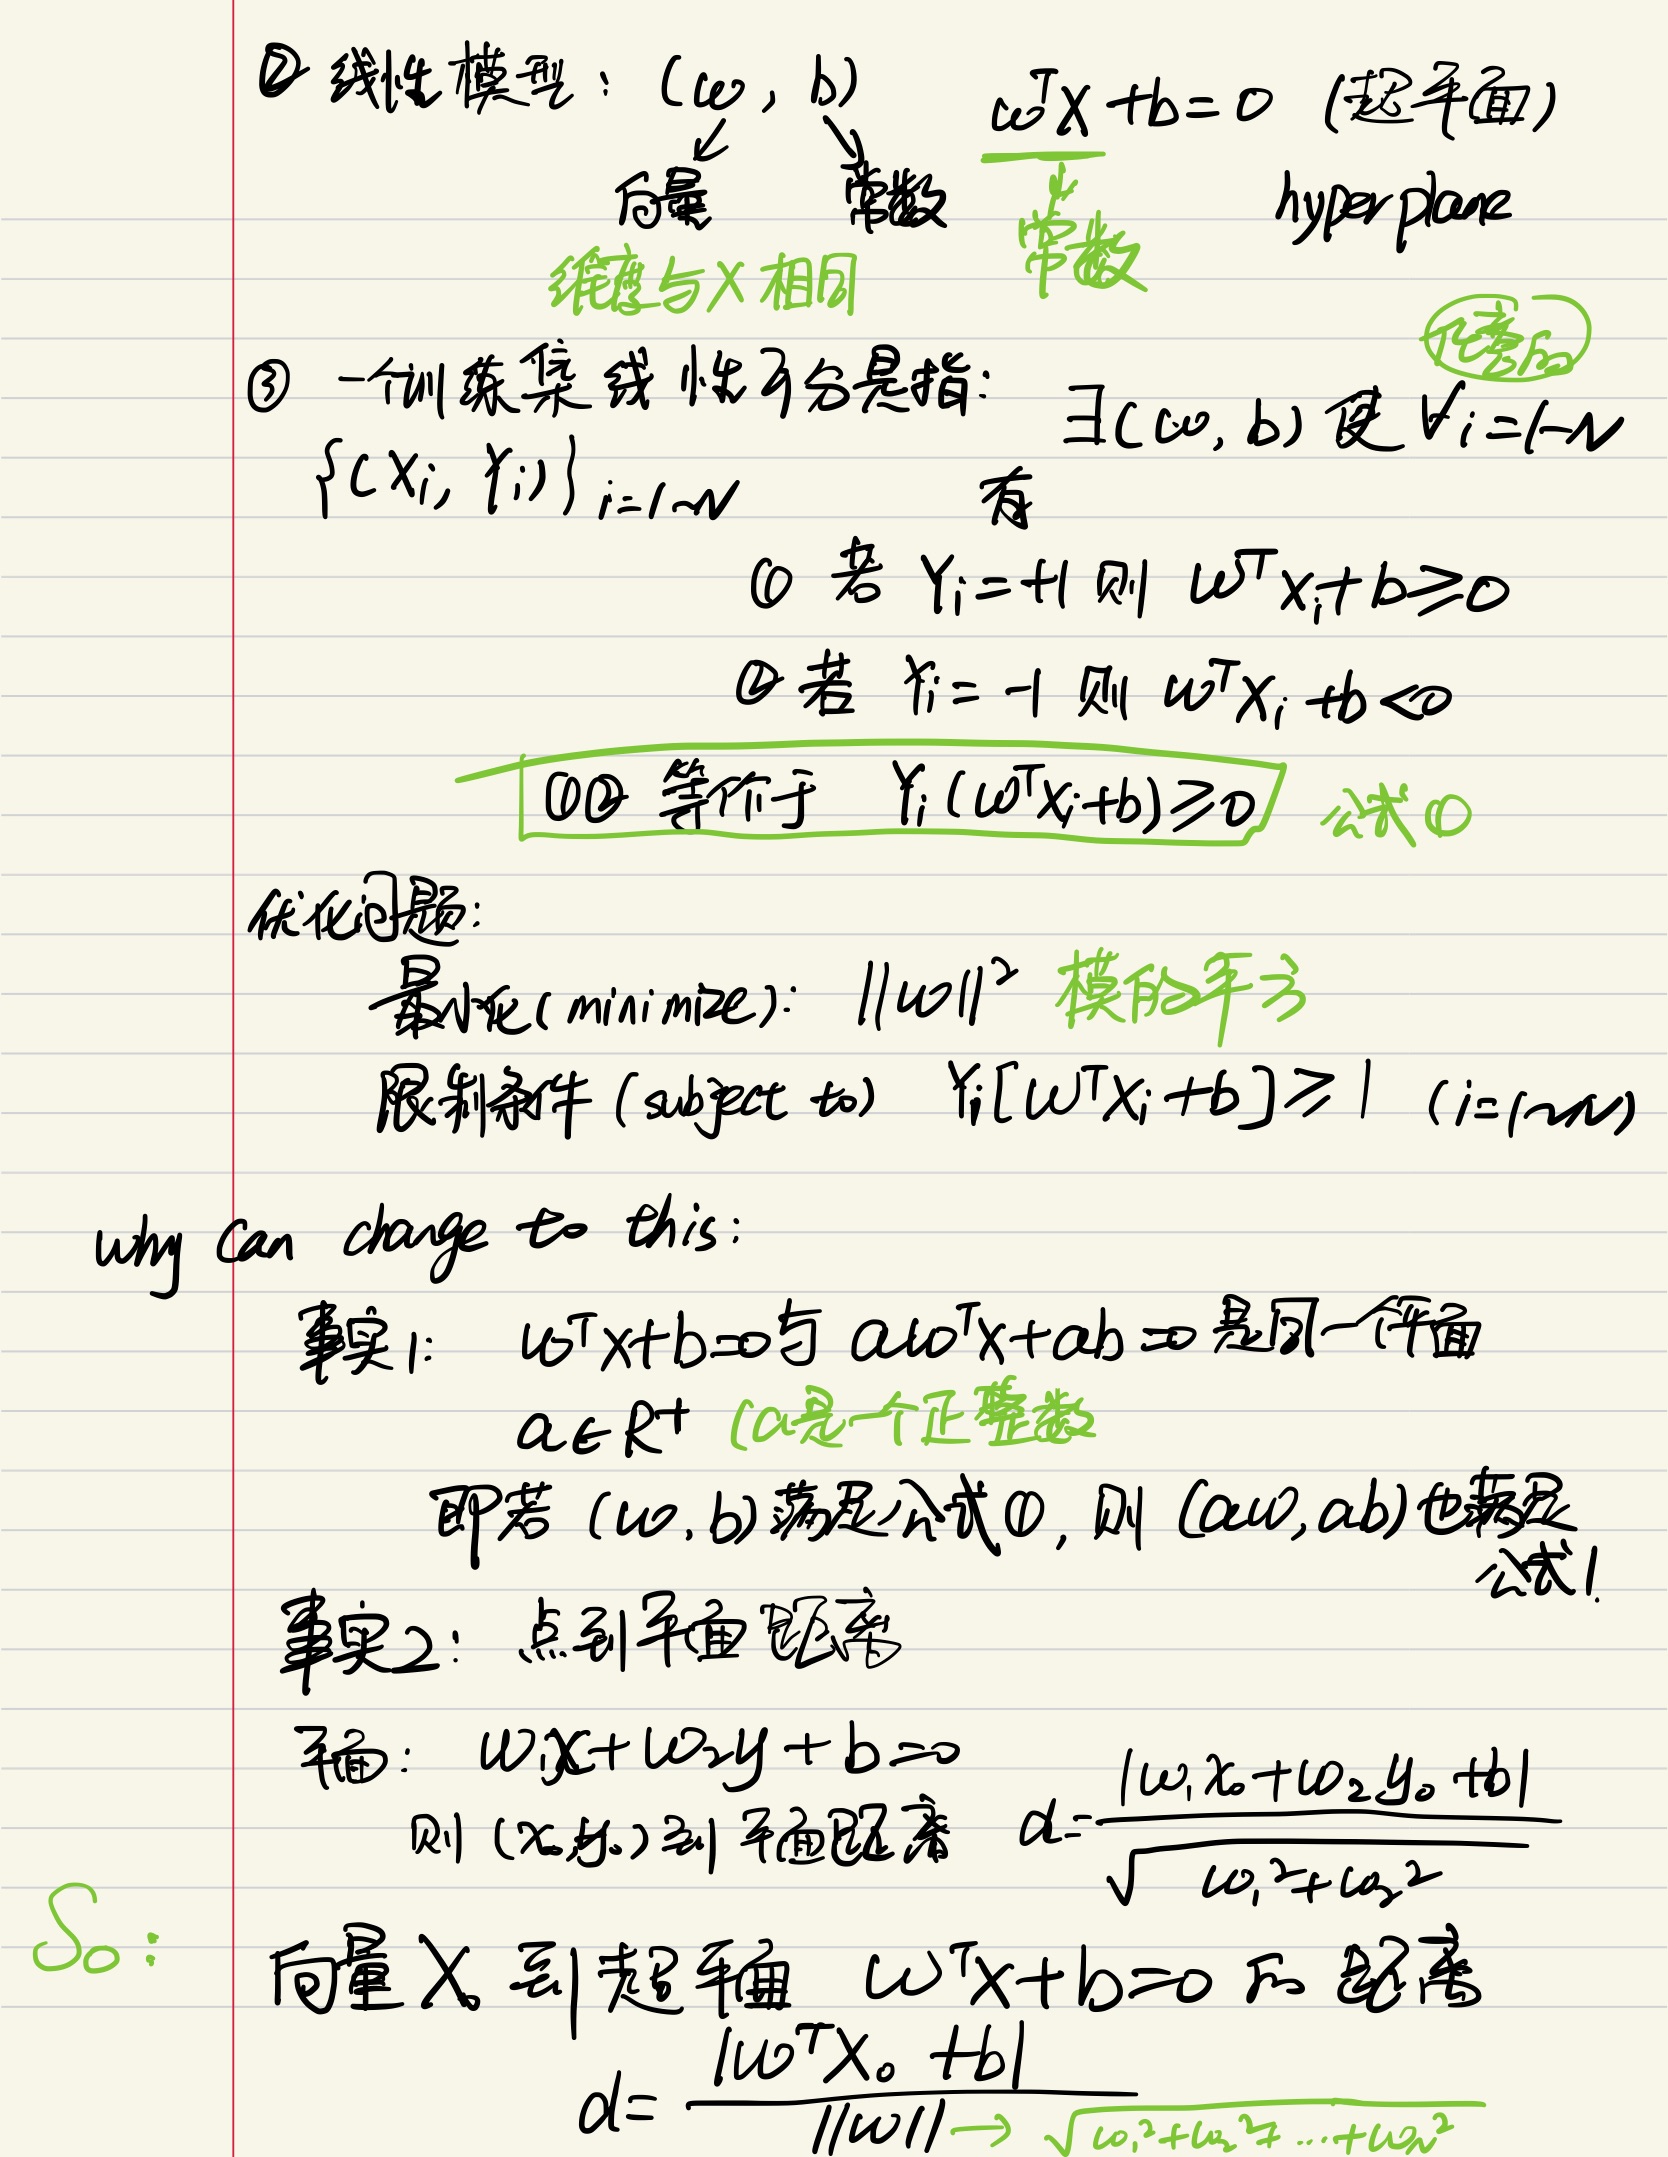 ② 线性模型：(ω, b) ωᵀX+b=0 (超平面)
向量 常数 hyperplane
维度与X相同 常数
③ 一个训练集线性可分是指：
{(Xi, Yi)} i=1~N ∃(ω, b) 使 ∀i=1~N
有
① 若 Yi=+1 则 ωᵀXi+b≥0
② 若 Yi=-1 则 ωᵀXi+b<0
①② 等价于 Yi(ωᵀXi+b)≥0 公式①
优化问题：
最小化(minimize)：||ω||² 模的平方
限制条件(subject to) Yi[ωᵀXi+b]≥1 (i=1~N)
why can change to this:
事实1: ωᵀX+b=0与 aωᵀX+ab=0 是同一个平面
a∈R⁺ (a是一个正整数
即若 (ω, b)满足公式①, 则 (aω, ab)也满足
公式1.
事实2: 点到平面距离
平面: ω₁x+ω₂y+b=0
则 (x₀,y₀) 到平面距离 d=|ω₁x₀+ω₂y₀+b| / √(ω₁²+ω₂²)
So: 向量 X₀ 到超平面 ωᵀX+b=0 的距离
d=|ωᵀX₀+b| / ||ω|| → √(ω₁²+ω₂²+...+ωN²)